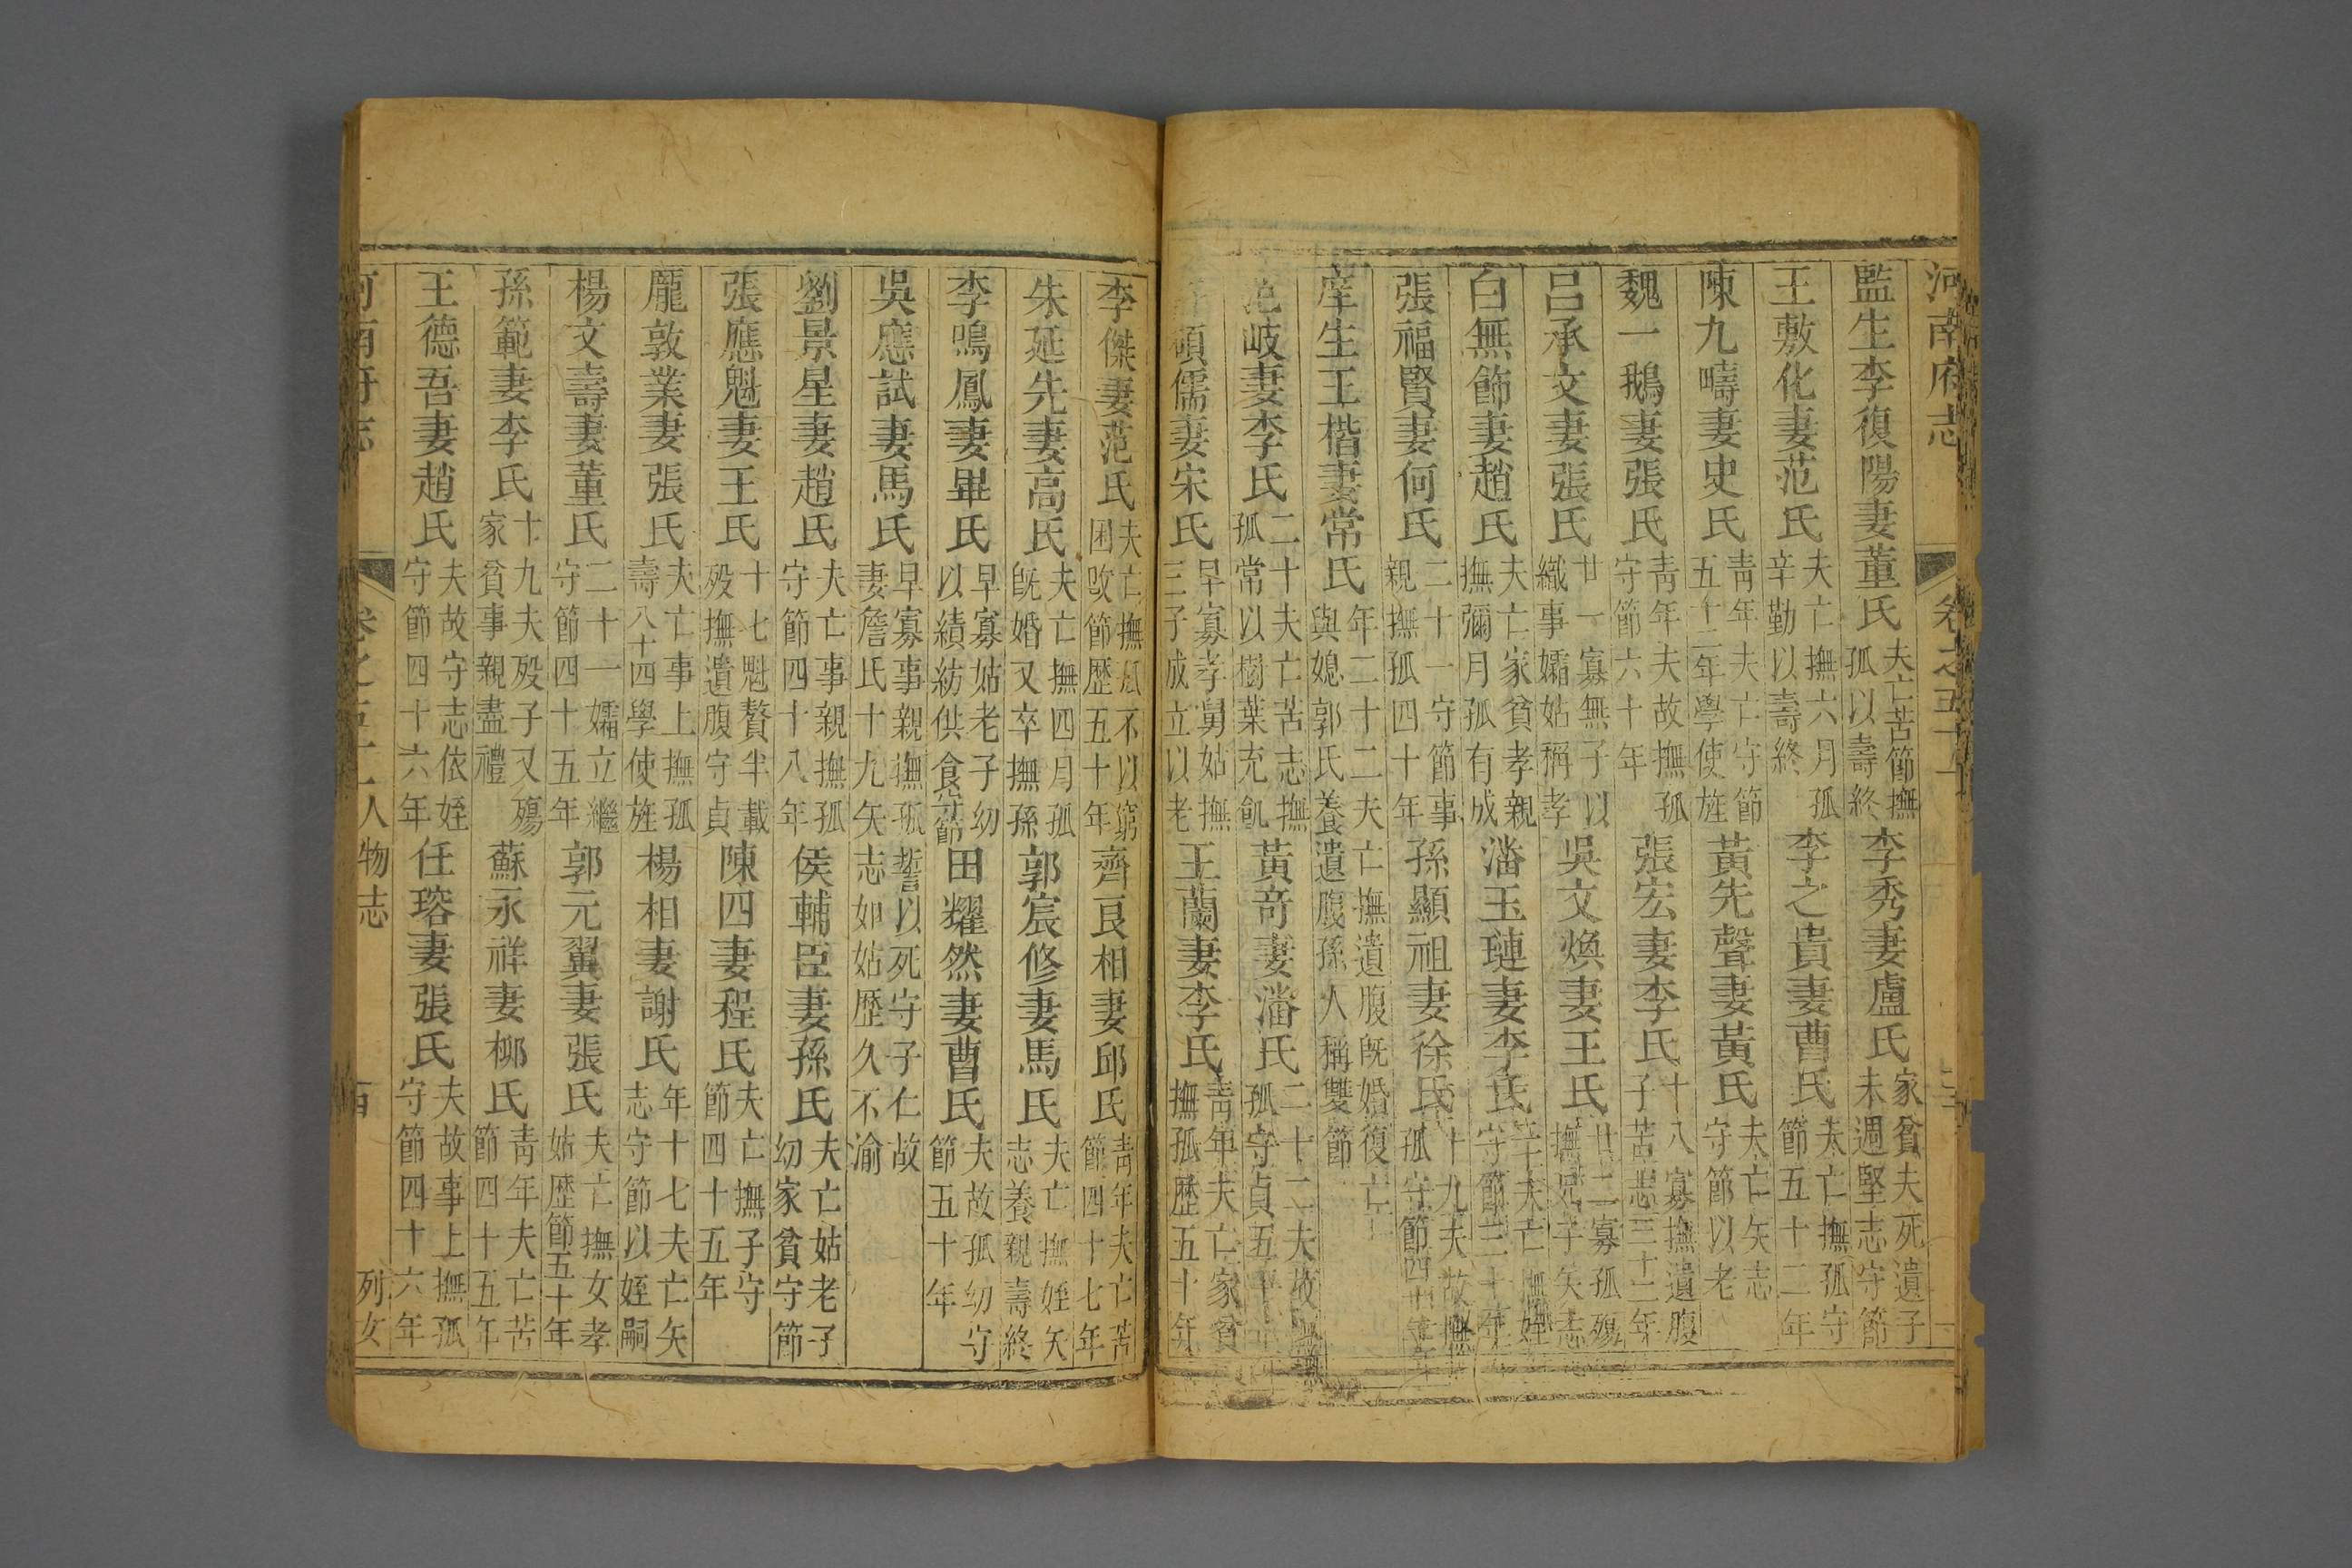 河南府志 卷之五十一
監生李復陽妻董氏夫亡苦節撫孤以壽終 李秀妻盧氏家貧夫死遺子未週堅志守節
王敷化妻范氏夫亡撫六月孤辛勤以壽終 李之貴妻曹氏夫亡撫孤守節五十二年
陳九疇妻史氏青年夫亡守節五十二年學使旌 黃先聲妻黃氏夫亡矢志守節以老
魏一鵝妻張氏青年夫故撫孤守節六十年 張宏妻李氏十八寡撫遺腹子苦志三十二年
呂承文妻張氏廿一寡無子以織事孀姑稱孝 吳文煥妻王氏廿二寡孤殤撫兄子矢志
白無飾妻趙氏夫亡家貧孝親撫彌月孤有成 潘玉璉妻李氏夫亡撫姪守節三十年
張福賢妻何氏二十一守節事親撫孤四十年 孫顯祖妻徐氏十九夫故撫孤守節四十年
庠生王楷妻常氏年二十二夫亡撫遺腹既婚復亡與媳郭氏養遺腹孫人稱雙節
范岐妻李氏二十夫亡苦志撫孤常以樹葉充飢 黃奇妻潘氏二十二夫故孤守貞五十
碩儒妻宋氏早寡孝舅姑撫三子成立以老 王蘭妻李氏青年夫亡家貧撫孤歷五十年
李傑妻范氏夫亡撫孤不以窮困改節歷五十年 齊良相妻邱氏青年夫亡苦節四十七年
朱延先妻高氏夫亡撫四月孤既婚又卒撫孫 郭宸修妻馬氏夫亡撫姪矢志養親壽終
李鳴鳳妻畢氏早寡姑老子幼以績紡供食守節 田耀然妻曹氏夫故孤幼守節五十年
吳應試妻馬氏早寡事親撫孤誓以死守子仁故妻詹氏十九矢志如姑歷久不渝
劉景星妻趙氏夫亡事親撫孤守節四十八年 侯輔臣妻孫氏夫亡姑老子幼家貧守節
張應魁妻王氏十七魁贅半載歿撫遺腹守貞 陳四妻程氏夫亡撫子守節四十五年
龐敦業妻張氏夫亡事上撫孤壽八十四學使旌 楊相妻謝氏年十七夫亡矢志守節以姪嗣
楊文壽妻董氏二十一孀立繼守節四十五年 郭元翼妻張氏夫亡撫女孝姑歷節五十年
孫範妻李氏十九夫歿子又殤家貧事親盡禮 蘇永祥妻柳氏青年夫亡苦節四十五年
王德吾妻趙氏夫故守志依姪守節四十六年 任瑢妻張氏夫故事上撫孤守節四十六年
河南府志 卷之五十一人物志 列女